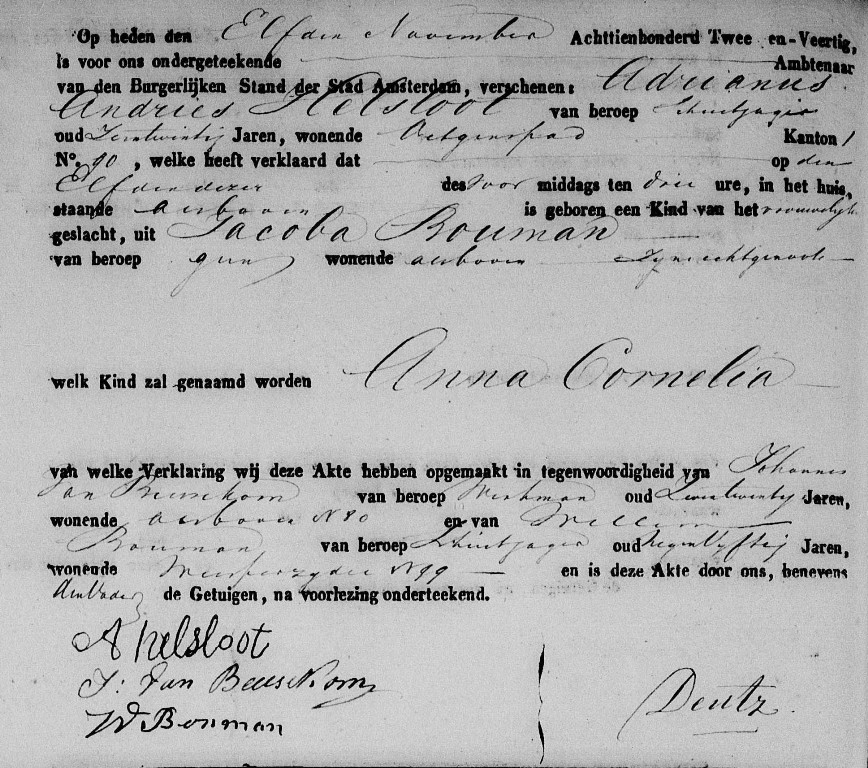 Op heden den Elfden November Achttienhonderd Twee en-Veertig,
is voor ons ondergeteekende Ambtenaar
van den Burgerlijken Stand der Stad Amsterdam, verschenen: Adrianus
Andries Helsloot van beroep Schuitjager
oud Jaren, wonende Kanton 1
N°. 90, welke heeft verklaard dat op den
Elfden dezer des voor middags ten drie ure, in het huis,
staande alsboven is geboren een Kind van het vrouwelijk
geslacht, uit Jacoba Bouman
van beroep geen wonende alsboven zijne echtgenoote
welk Kind zal genaamd worden Anna Cornelia
van welke Verklaring wij deze Akte hebben opgemaakt in tegenwoordigheid van Johannes
van Beusekom van beroep Werkman oud Jaren,
wonende alsboven N 80 en van Willem
Bouman van beroep Schuitjager oud Negenvyftig Jaren,
wonende N 99 en is deze Akte door ons, benevens
den Vader de Getuigen, na voorlezing onderteekend.
A helsloot
J: van Beusekom
W Bouman
Deutz